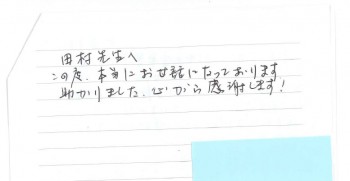 田村先生へ
この度、本当にお世話になっております
助かりました、心から感謝します!